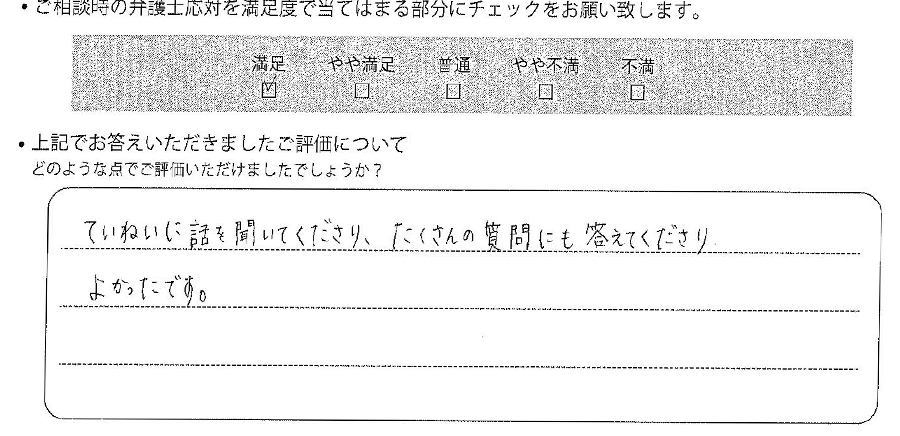 ・ご相談時の弁護士応対を満足度で当てはまる部分にチェックをお願い致します。
満足 やや満足 普通 やや不満 不満
☑ □ □ □ □
・上記でお答えいただきましたご評価について
どのような点でご評価いただけましたでしょうか？
ていねいに話を聞いてくださり、たくさんの質問にも答えてくださり
よかったです。